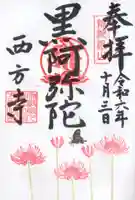 奉拝
令和六年
十月三日
黒阿弥陀
西方寺